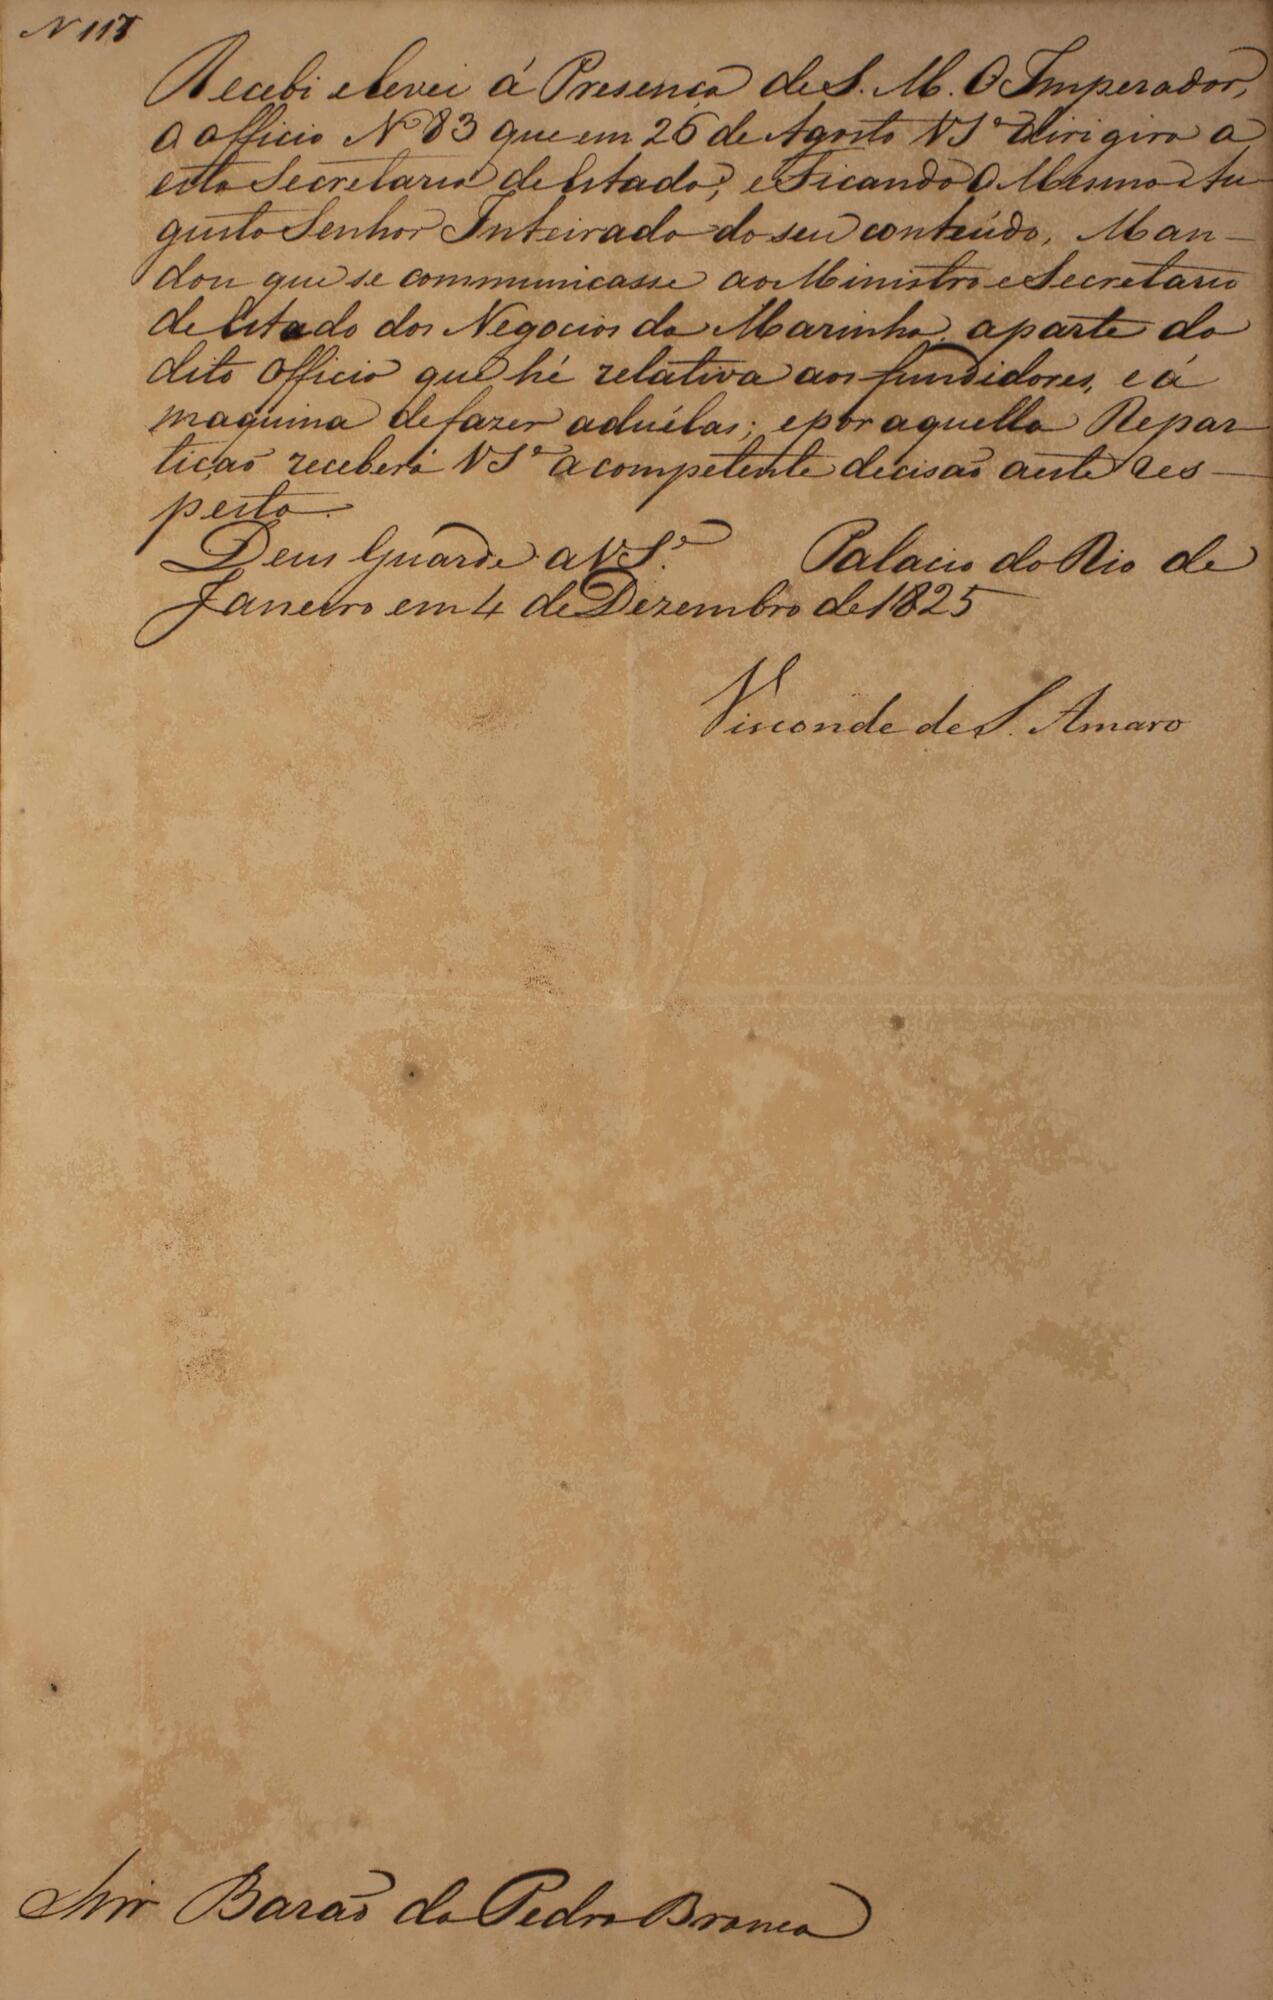 N 118
Recebi e levei á Presença de S. M. O Imperador,
o officio Nº 83 que em 26 de Agosto VSª dirigira a
esta Secretaria de Estado; e Ficando O Mesmo Au-
gusto Senhor Inteirado do seu contéudo, Man-
dou que se communicasse ao Ministro e Secretario
de Estado dos Negocios da Marinha, a parte do
dito officio que hé relativa aos fundidores, e á
maquina de fazer aduélas; e por aquella Repar-
tiçaõ receberá VSª a competente decisaõ a este res-
peito.
Deus Guarde a VSª. Palacio do Rio de
Janeiro em 4 de Dezembro de 1825
Visconde de S. Amaro
Snr Baraõ da Pedra Branca